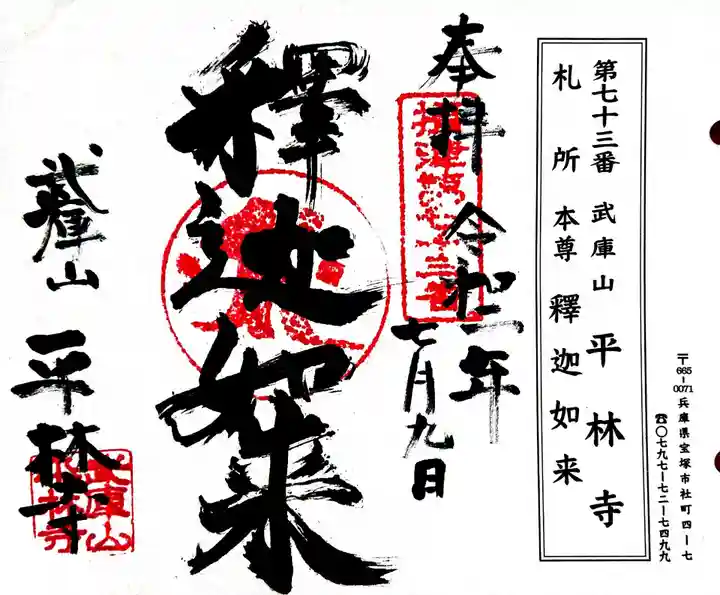 第七十三番 武庫山 平林寺
札所本尊 釋迦如来
〒665-0071 兵庫県宝塚市社町四ー七
☎〇七九七ー七二ー七四九九
奉拝 令和二年
七月九日
釋迦如来
武庫山 平林寺
武庫山
平林寺